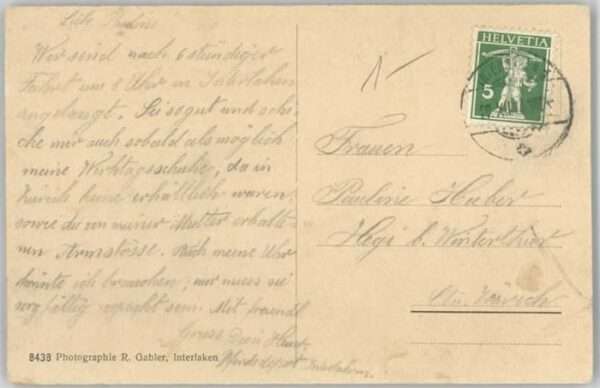 Liebe Pauline
Wir sind nach 6 stündiger
Fahrt um 8 Uhr in Interlaken
angelangt. Sei so gut und schi-
cke mir auch sobald als möglich
meine Werktagsschuhe, da in
Zürich keine erhältlich waren
sowie die von meiner Mutter erhalte-
nen Armstösse. Auch meine Uhr
könnte ich brauchen; nur muss sie
sorgfältig verpackt sein. Mit freundl
Gruss Dein
Pferdedepot Interlaken
8438 Photographie R. Gabler, Interlaken
HELVETIA
5
Frauen
Pauline Huber
Hegi b. Winterthur
Ktn. Zürich